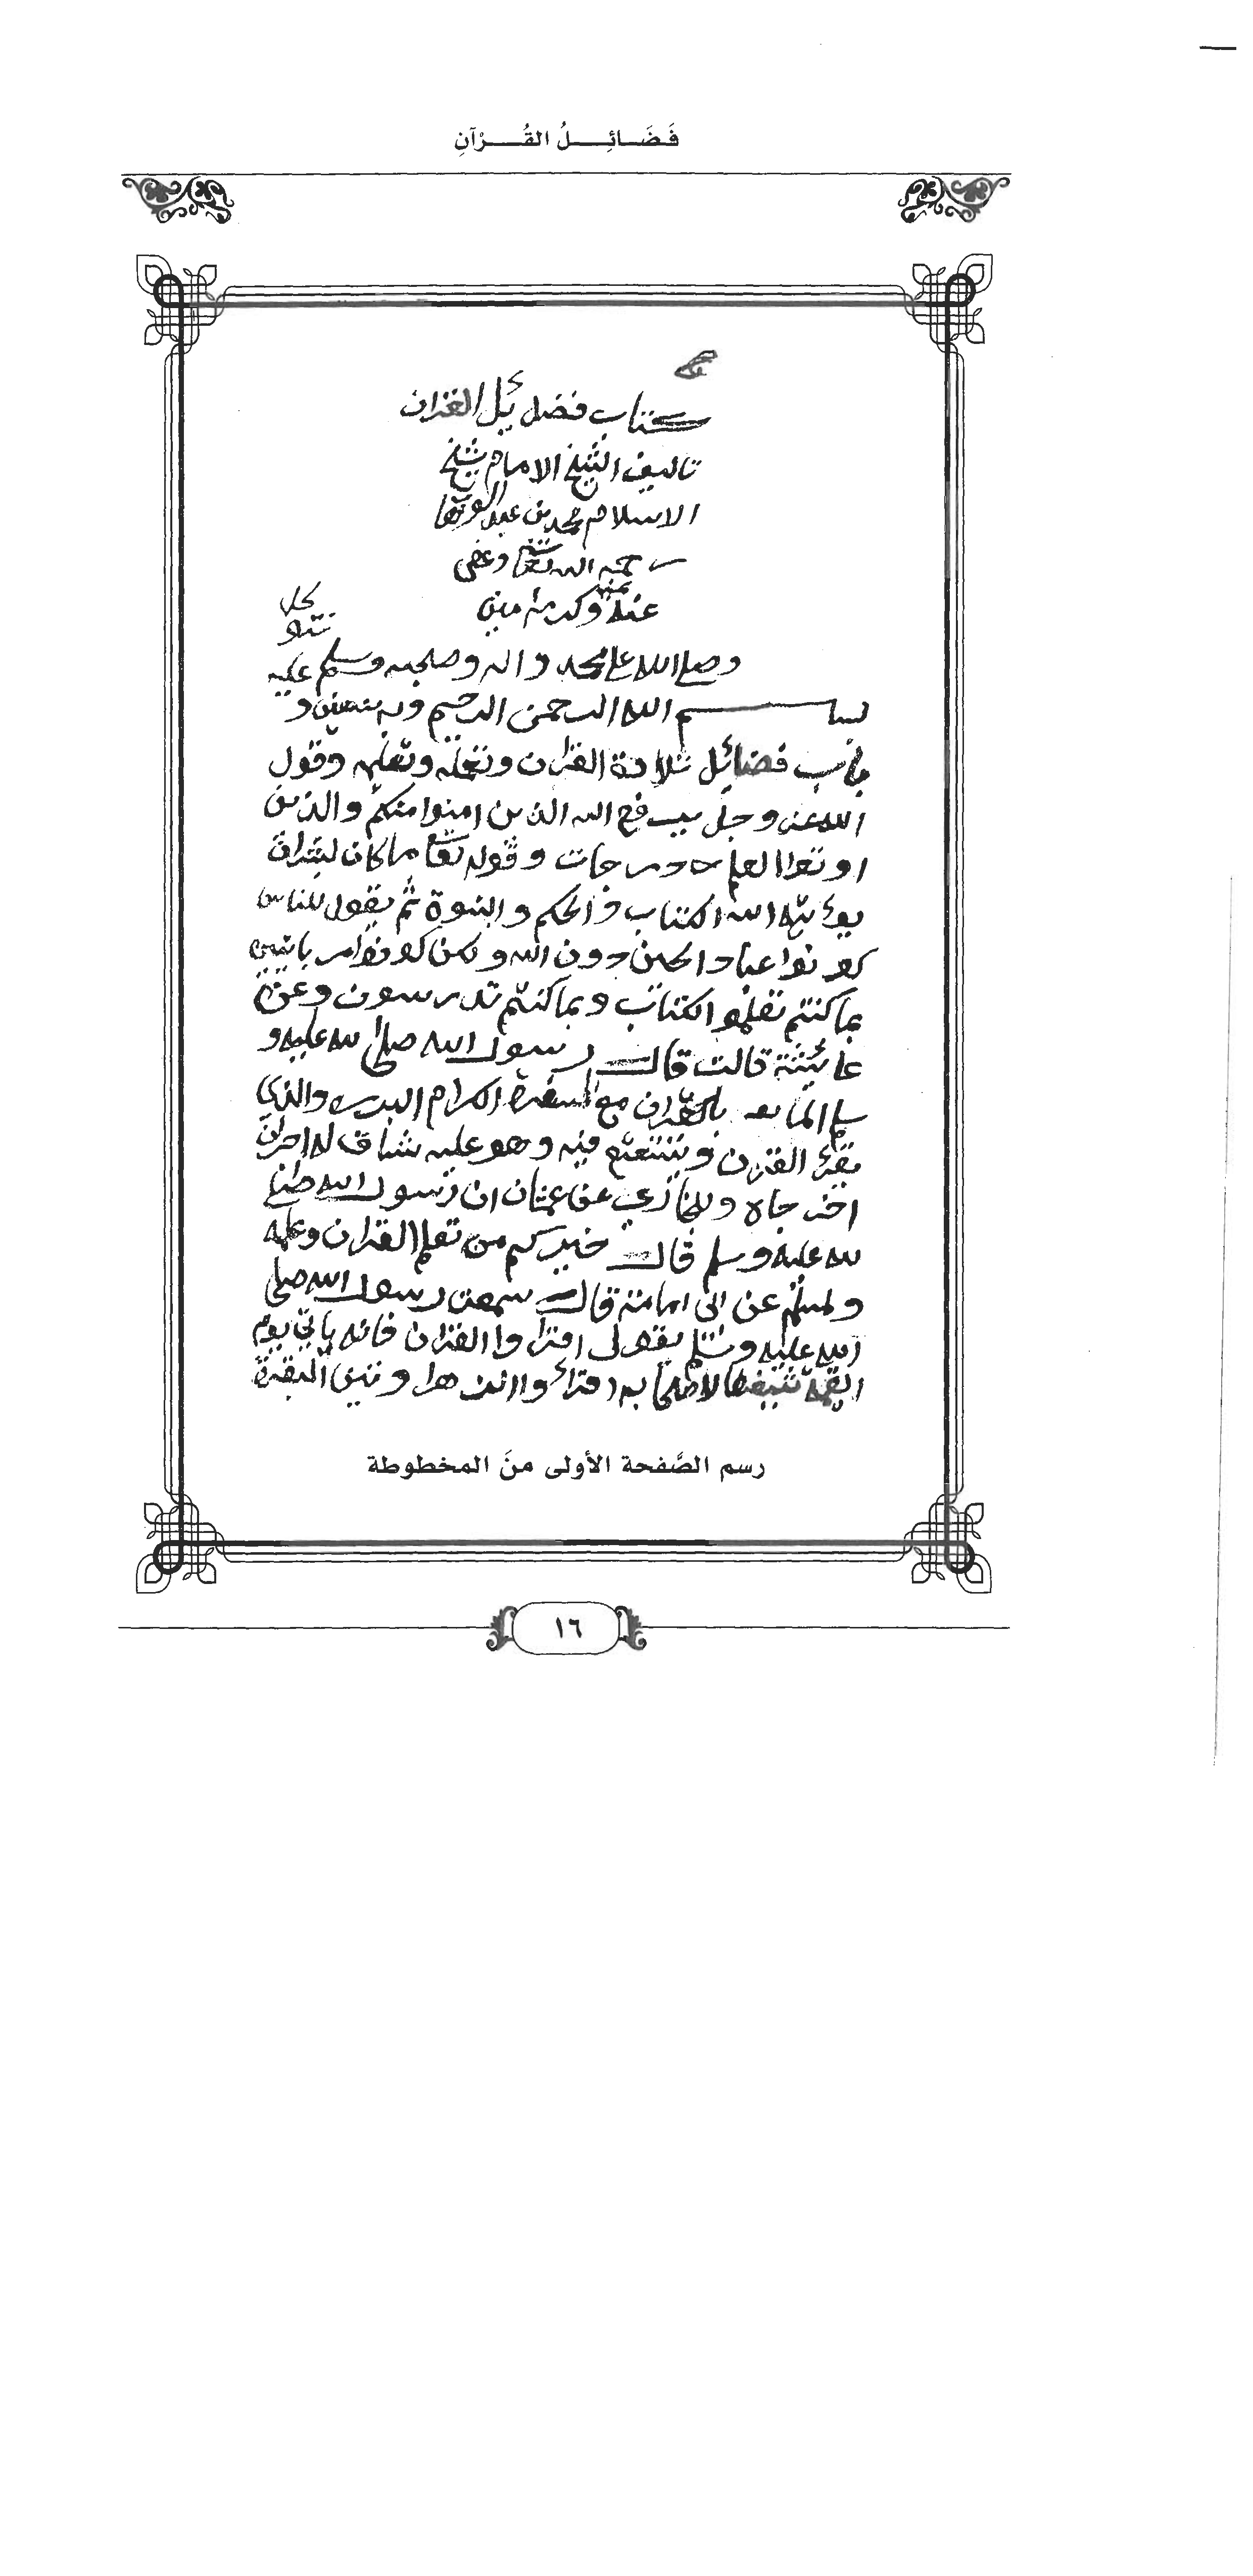 فَضَائِلُ القُرْآنِ
كتاب فضائل القران
تاليف الشيخ الامام شيخ
الاسلام محمد بن عبد الوهاب
رحمه الله تعالى وعفى
عنه بمنه وكرمه امين
وصلى الله على محمد واله وصحبه وسلم عليه
بسم الله الرحمن الرحيم وبه نستعين و
باب فضائل تلاوة القران وتعلمه وتعليمه وقول
الله عز وجل يرفع الله الذين امنوا منكم والذين
اوتوا العلم درجات وقوله تعا ما كان لبشر ان
يوٴتيه الله الكتاب والحكم والنبوة ثم يقول للناس
كونوا عبادا لي من دون الله ولكن كونوا ربانيين
بما كنتم تعلمو الكتاب وبما كنتم تدرسون وعن
عائشة قالت قال رسول الله صلى لله عليه و
سلم الماهر بالقران مع السفرة الكرام البرره والذي
يقرٴ القرن ويتتعتع فيه وهو عليه شاق له اجران
اخرجاه وللبخاري عن عثمان ان رسول الله صلى
لله عليه وسلم قال خيركم من تعلم القران وعلمه
ولمسلم عن ابي امامة قال سمعت رسول الله صلى
الله عليه وسلم يقول اقراوا القران فانه ياتي يوم
القيمة شفيعا لاصحابه اقرائوا الزهراوتين البقرة
رسم الصَّفحة الأولى منَ المخطوطة
١٦